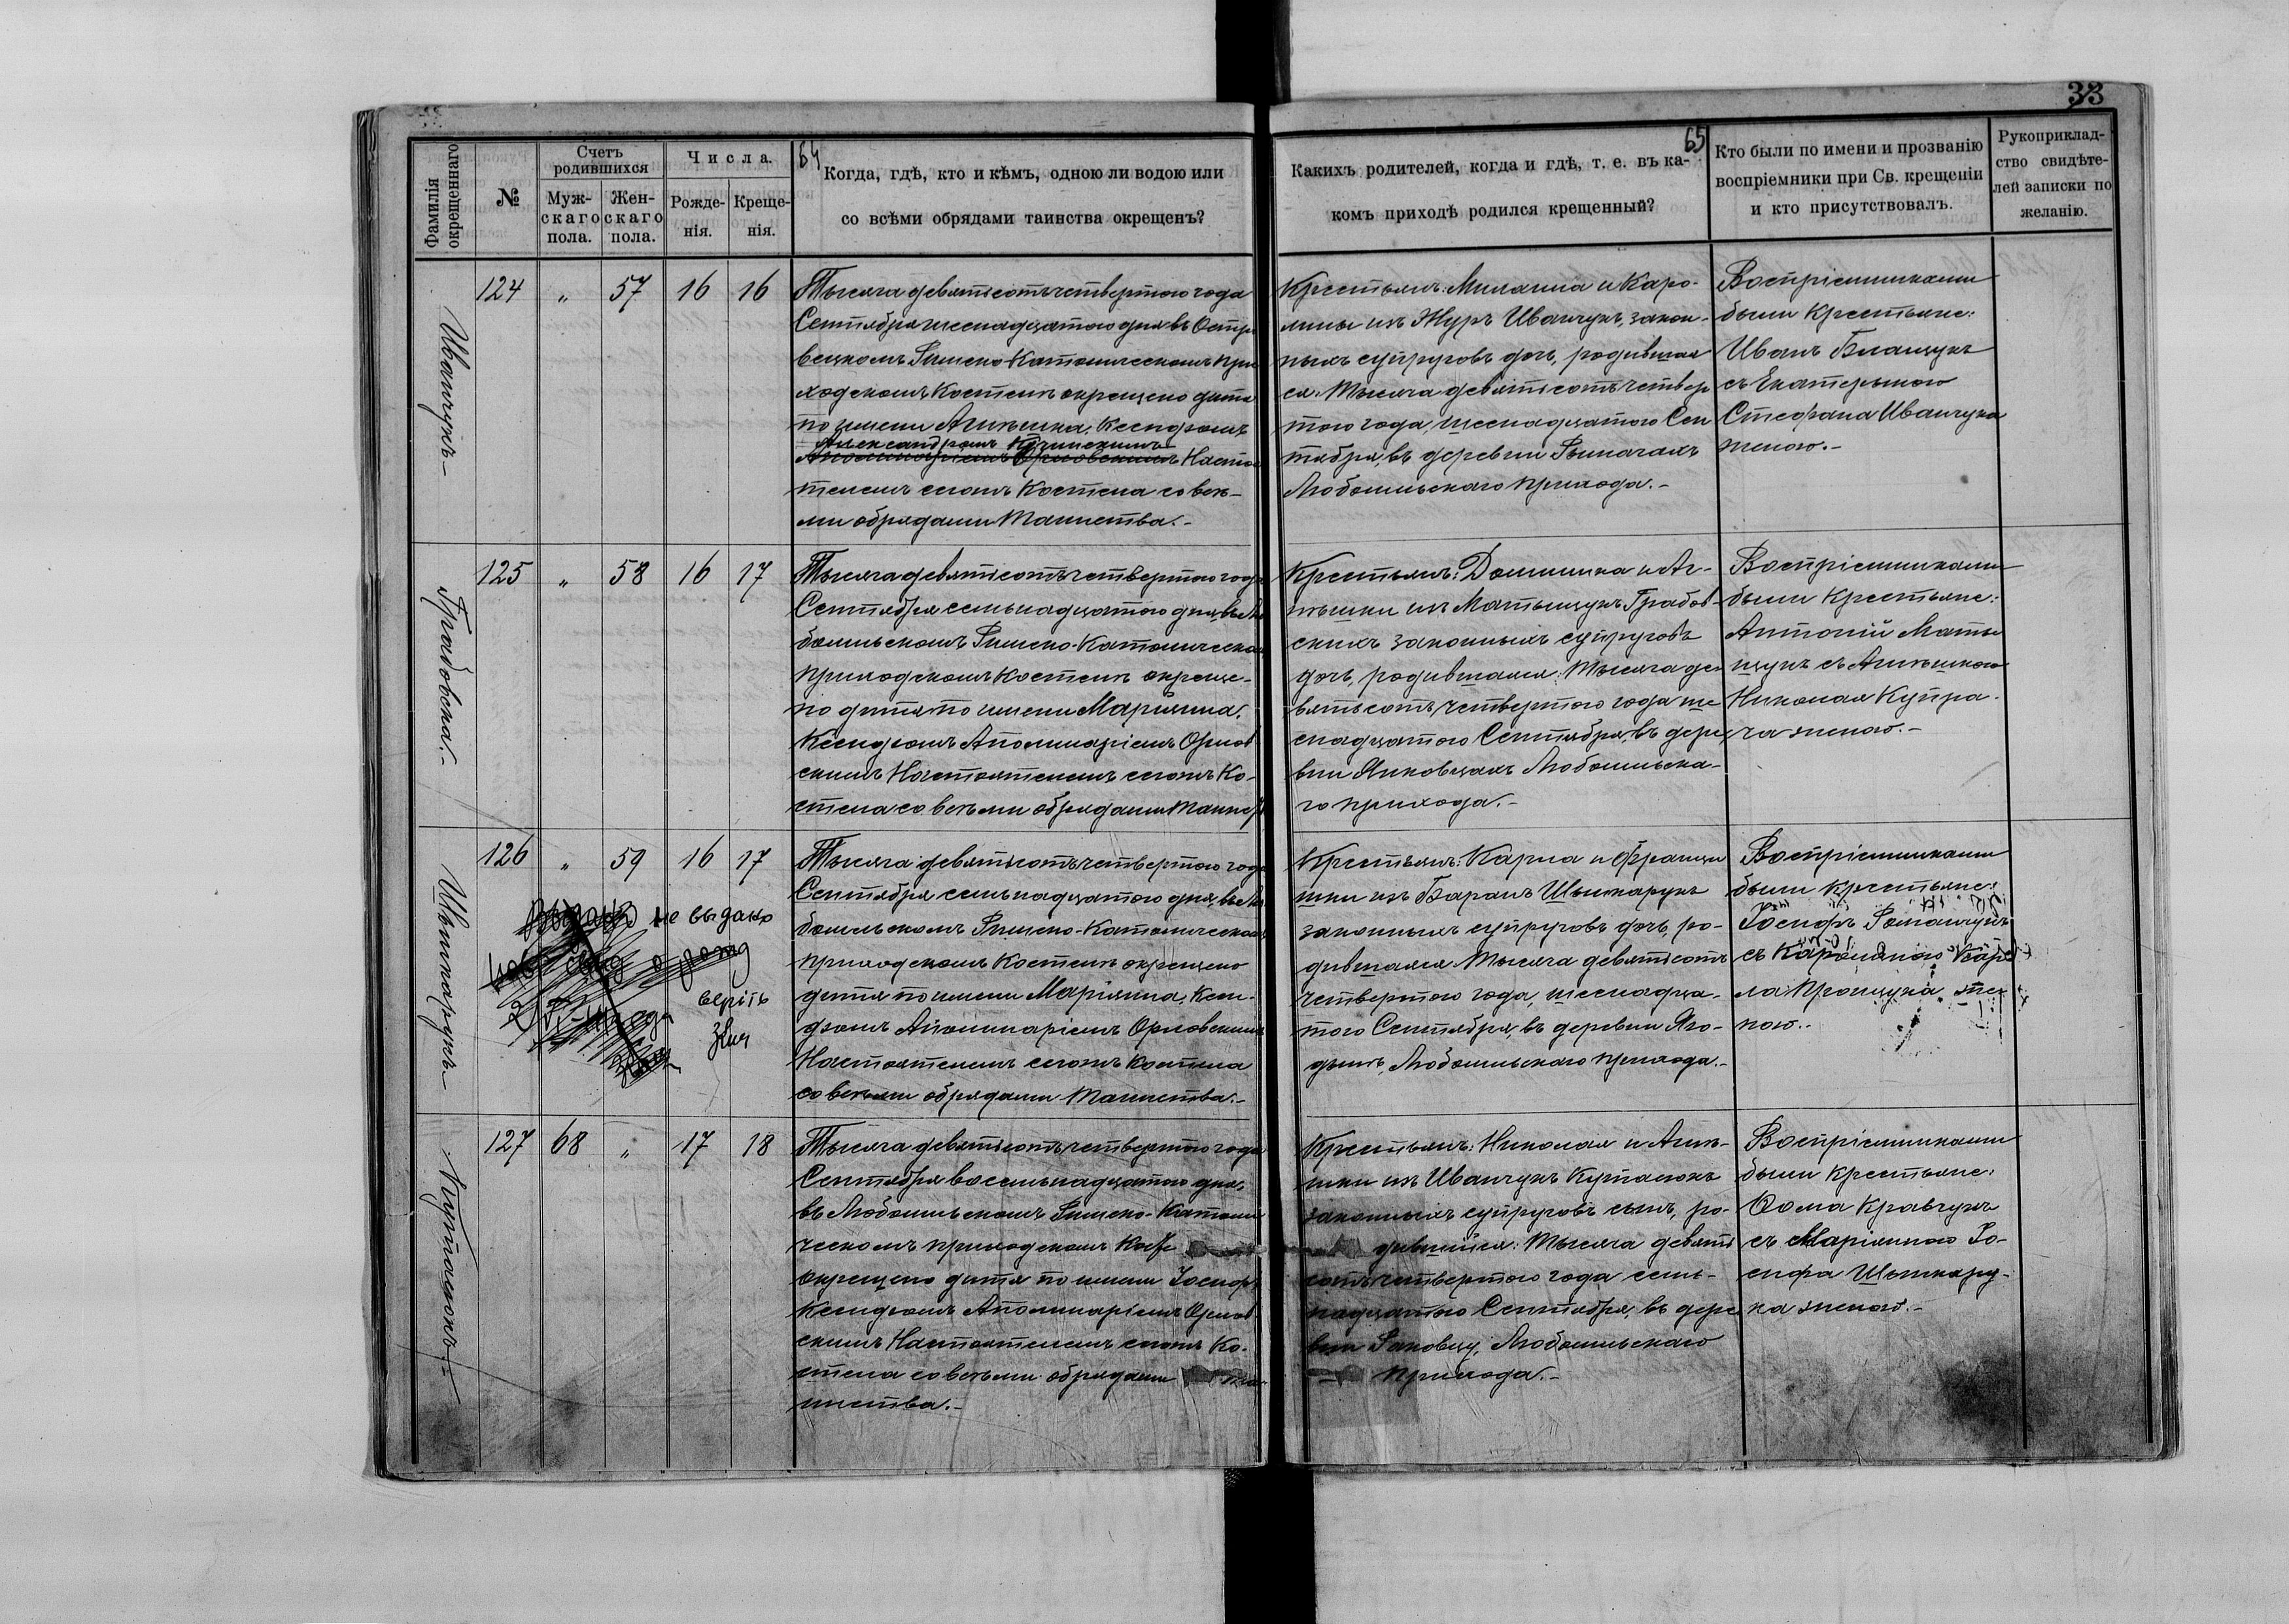 33
64
65
Фамилія окрещеннаго
№
Счетъ родившихся
Муж-
скаго
пола.
Жен-
скаго
пола.
Числа.
Рожде-
нія.
Креще-
нія.
Когда, гдѣ, кто и кѣмъ, одною ли водою или
со всѣми обрядами таинства окрещенъ?
Какихъ родителей, когда и гдѣ, т. е. въ ка-
комъ приходѣ родился крещенный?
Кто были по имени и прозванію
воспріемники при Св. крещеніи
и кто присутствовалъ.
Рукоприклад-
ство свидѣте-
лей записки по
желанію.
Иванчукъ
124 " 57 16 16
Тысяча девятьсотъ четвертого года
Сентября шеснадцатого дня въ Остро
вецкомъ Римско-Католическомъ при
ходскомъ Костелѣ окрещено дитя
по имени Агнѣшка, Ксендзомъ
Александромъ
Аполинаріемъ Орловскимъ Насто
телемъ сегожъ Костела со всѣ-
ми обрядами Таинства.-
Крестьянъ: Милана и Каро-
лины изъ Журъ Иванчукъ, закон-
ныхъ супруговъ дочь, родившая
ся: Тысяча девятьсотъ четвер
того года, шеснадцатого Сен
тября, въ деревни Рымачахъ
Любомльскаго прихода.-
Воспріемниками
были Крестьяне:
Иванъ Блащукъ
съ Екатериною
Стефана Иванчука
женою.-
Грабовска.-
125 " 58 16 17
Тысяча девятьсотъ четвертого года
Сентября семьнадцатого дня, въ Лю
бомльскомъ Римско-Католическом
приходскомъ Костелѣ окреще-
но дитя по имени Маріянна.
Ксендзомъ Аполинаріемъ Орлов
скимъ Настоятелемъ сегожъ Ко-
стела со всѣми обрядами Таинств
Крестьянъ: Доминика и Аг-
нѣшки изъ Матыщукъ Грабов-
скихъ законныхъ супруговъ
дочь, родившаяся: Тысяча де
вятьсотъ четвертого года ше
снадцатого Сентября, въ дере
вни Янковцахъ Любомльска-
го прихода.-
Воспріемниками
были Крестьяне:
Антоній Маты
щукъ съ Агнѣшкою
Николая Купра
ча женою.-
Шинкарукъ
126 " 59 16 17
не выдано
верить
Тысяча девятьсотъ четвертого года
Сентября семьнадцатого дня, въ Лю
бомльскомъ Римско-Католическом
приходскомъ Костелѣ окрещено
дитя по имени Маріянна, Ксен-
дзомъ Аполинаріемъ Орловским
Настоятелемъ сегожъ Костела
со всѣми обрядами Таинства.-
Крестьянъ: Карла и Францы
шки изъ Баранъ Шинкарукъ
законныхъ супруговъ дочь, ро-
дившаяся: Тысяча девятьсотъ
четвертого года, шеснадца-
того Сентября, въ деревни Яго-
дынѣ, Любомльскаго прихода.-
Воспріемниками
были Крестьяне:
Іосифъ Романчукъ
съ Каролиною Кар
ла Прощука же
ною.-
127 68 " 17 18
Тысяча девятьсотъ четвертого года
Сентября восемьнадцатого дня,
въ Любомльскомъ Римско-Католи
ческомъ приходскомъ
окрещено дитя по имени Іосифъ
Ксендзомъ Аполинаріемъ Орлов
скимъ Настоятелемъ сегожъ Ко-
стела со всѣми обрядами Та
инства.-
Крестьянъ: Николая и Агнѣ-
шки изъ Иванчукъ
законныхъ супруговъ сынъ, ро-
дившійся: Тысяча девять
сотъ четвертого года семь-
надцатого Сентября, въ дере
вни Раковцу, Любомльскаго
прихода.-
Воспріемниками
были Крестьяне:
Ѳома Кравчукъ
съ Маріянною Іо-
сифа Шинкару-
ка женою.-